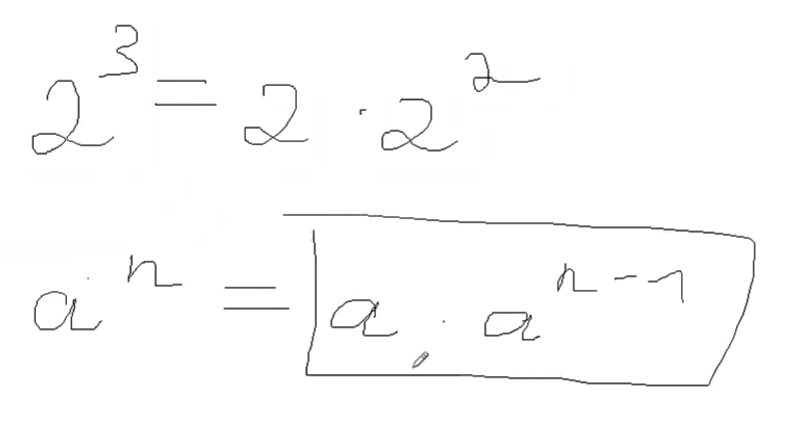 2³ = 2 · 2²
aⁿ = a · aⁿ⁻¹